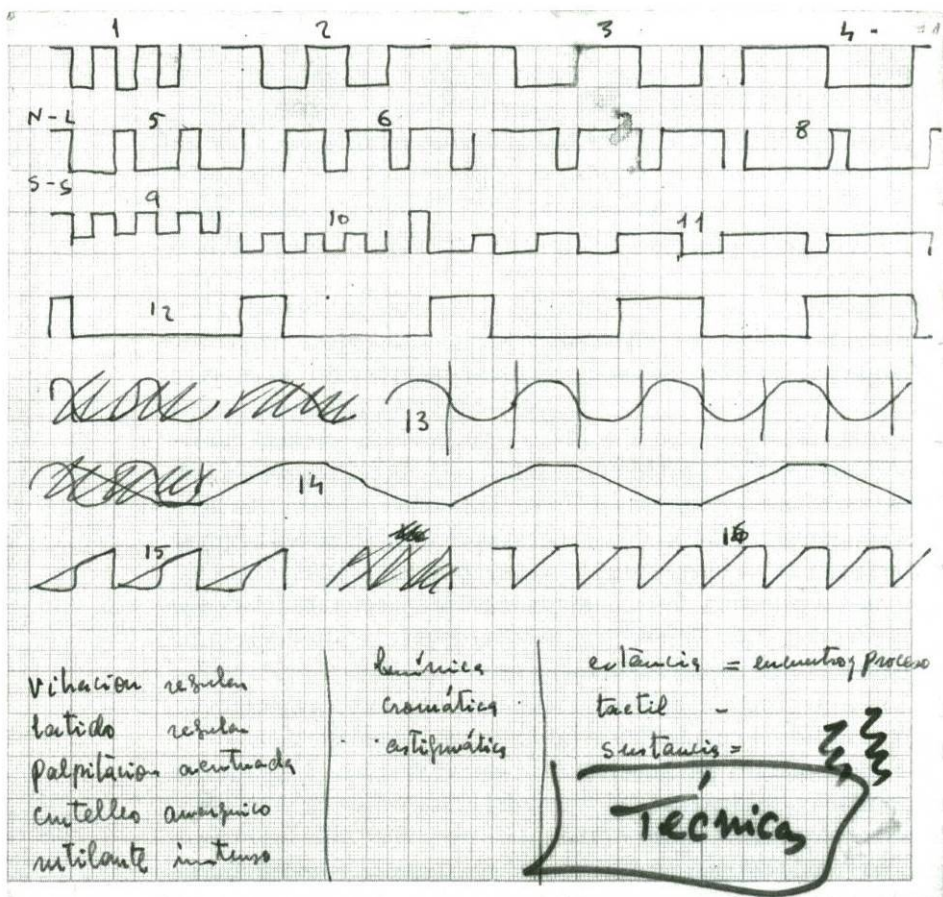 1 2 3 4 -
N-L 5 6 7 8
S-S
9 10 11
12
13
14
15 16
Vibracion regular
latido regular
Palpitacion acentuada
centelleo anarquico
rutilante intenso
lumínica
cromática
astigmática
estancia = encuentro y proceso
tactil -
sustancia =
Técnica